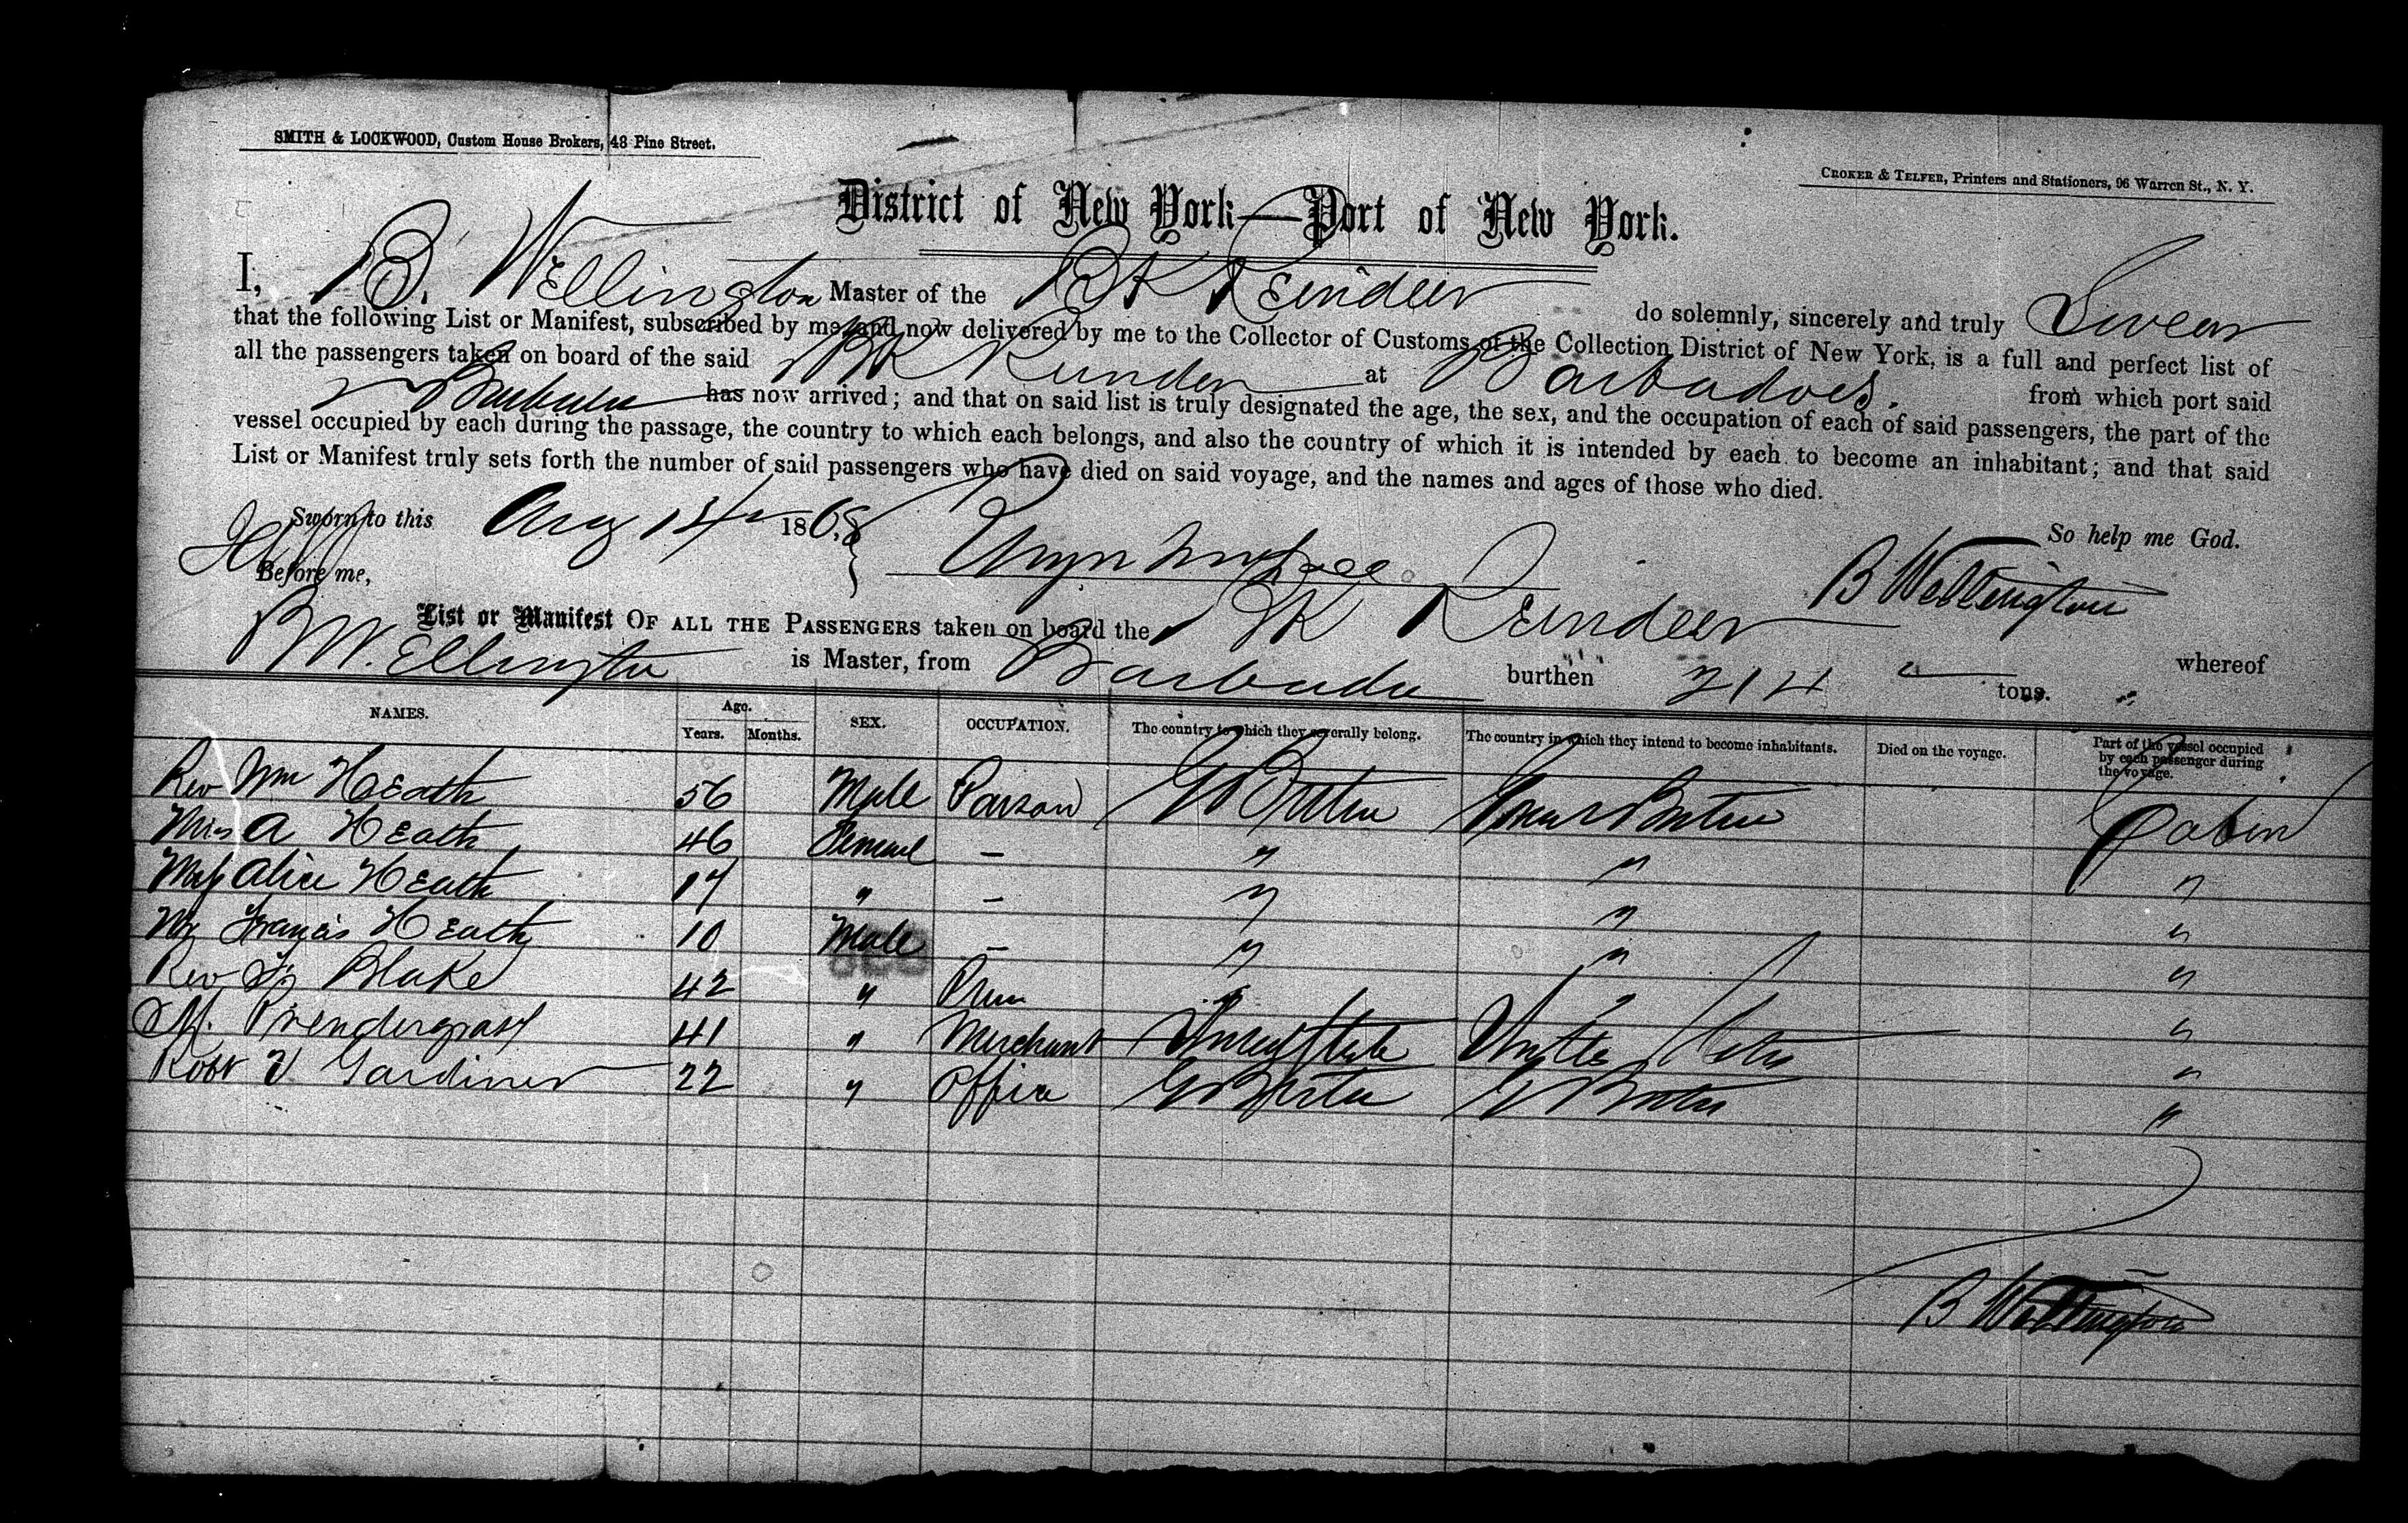 SMITH & LOCKWOOD, Custom House Brokers, 48 Pine Street.
CROKER & TELFER, Printers and Stationers, 96 Warren St., N. Y.
District of New York—Port of New York.
I, B. Wellington Master of the Bk Reindeer do solemnly, sincerely and truly Swear
that the following List or Manifest, subscribed by me, and now delivered by me to the Collector of Customs of the Collection District of New York, is a full and perfect list of
all the passengers taken on board of the said Bk Reindeer at Barbadoes. from which port said
Barbados has now arrived; and that on said list is truly designated the age, the sex, and the occupation of each of said passengers, the part of the
vessel occupied by each during the passage, the country to which each belongs, and also the country of which it is intended by each to become an inhabitant; and that said
List or Manifest truly sets forth the number of said passengers who have died on said voyage, and the names and ages of those who died.
Sworn to this Aug 14 1868 So help me God.
Before me, B Wellington
List or Manifest OF ALL THE PASSENGERS taken on board the Bk Reindeer whereof
B Wellington is Master, from Barbados burthen 214 tons.
NAMES. Age. Years. Months. SEX. OCCUPATION. The country to which they severally belong. The country in which they intend to become inhabitants. Died on the voyage. Part of the vessel occupied by each passenger during the voyage.
Rev Wm Heath 56 Male Parson G Britain Great Britain Cabin
Mrs A Heath 46 Female — " " "
Miss Alice Heath 17 " — " " "
Francis Heath 10 Male — " " "
Rev Blake 42 " " " "
M. Prendergast 41 " Merchant United States "
Robt Gardiner 22 " Office G Britain G Britain "
B Wellington